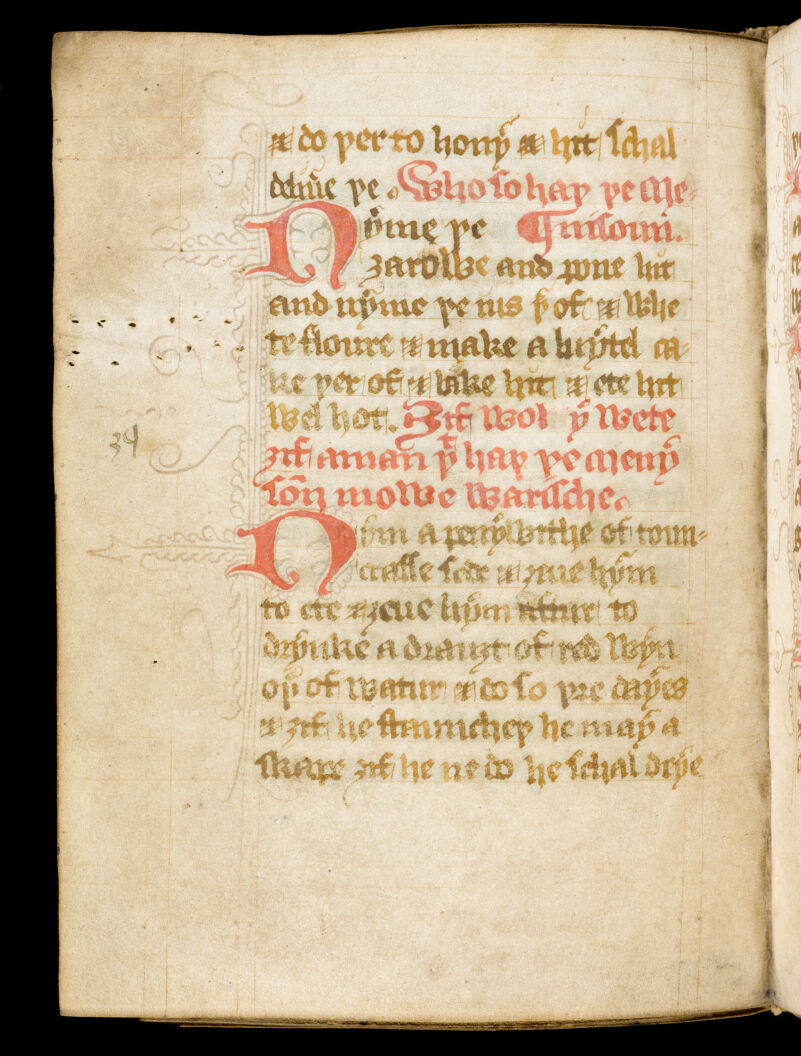 ⁊ do þer to hony ⁊ hit schal
deliũe þe. Who so haþ þe Me-
Nyme þe nisoun.
ȝarowe and pone hit
and nyme þe ius þͬ of ⁊ whe
te floure ⁊ make a luytel ca-
ke þer of ⁊ bake hit ⁊ ete hit
wel hot. Ȝif wol þͧ wete
ȝif aman þͭ haþ þe meny
son mowe warische.
Nym a penywithe of toun-
crasse sede ⁊ ȝiue hym
to ete ⁊ ȝeue hym to
drynke a drauȝt of red wyn
oþͬ of watur ⁊ do so þre dayes
⁊ ȝif he staunicheþ he may a
skape ȝif he ne do he schal deye
34